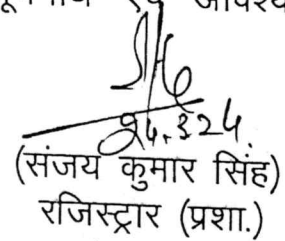 एवं
24.3.24.
(संजय कुमार सिंह)
रजिस्ट्रार (प्रशा.)